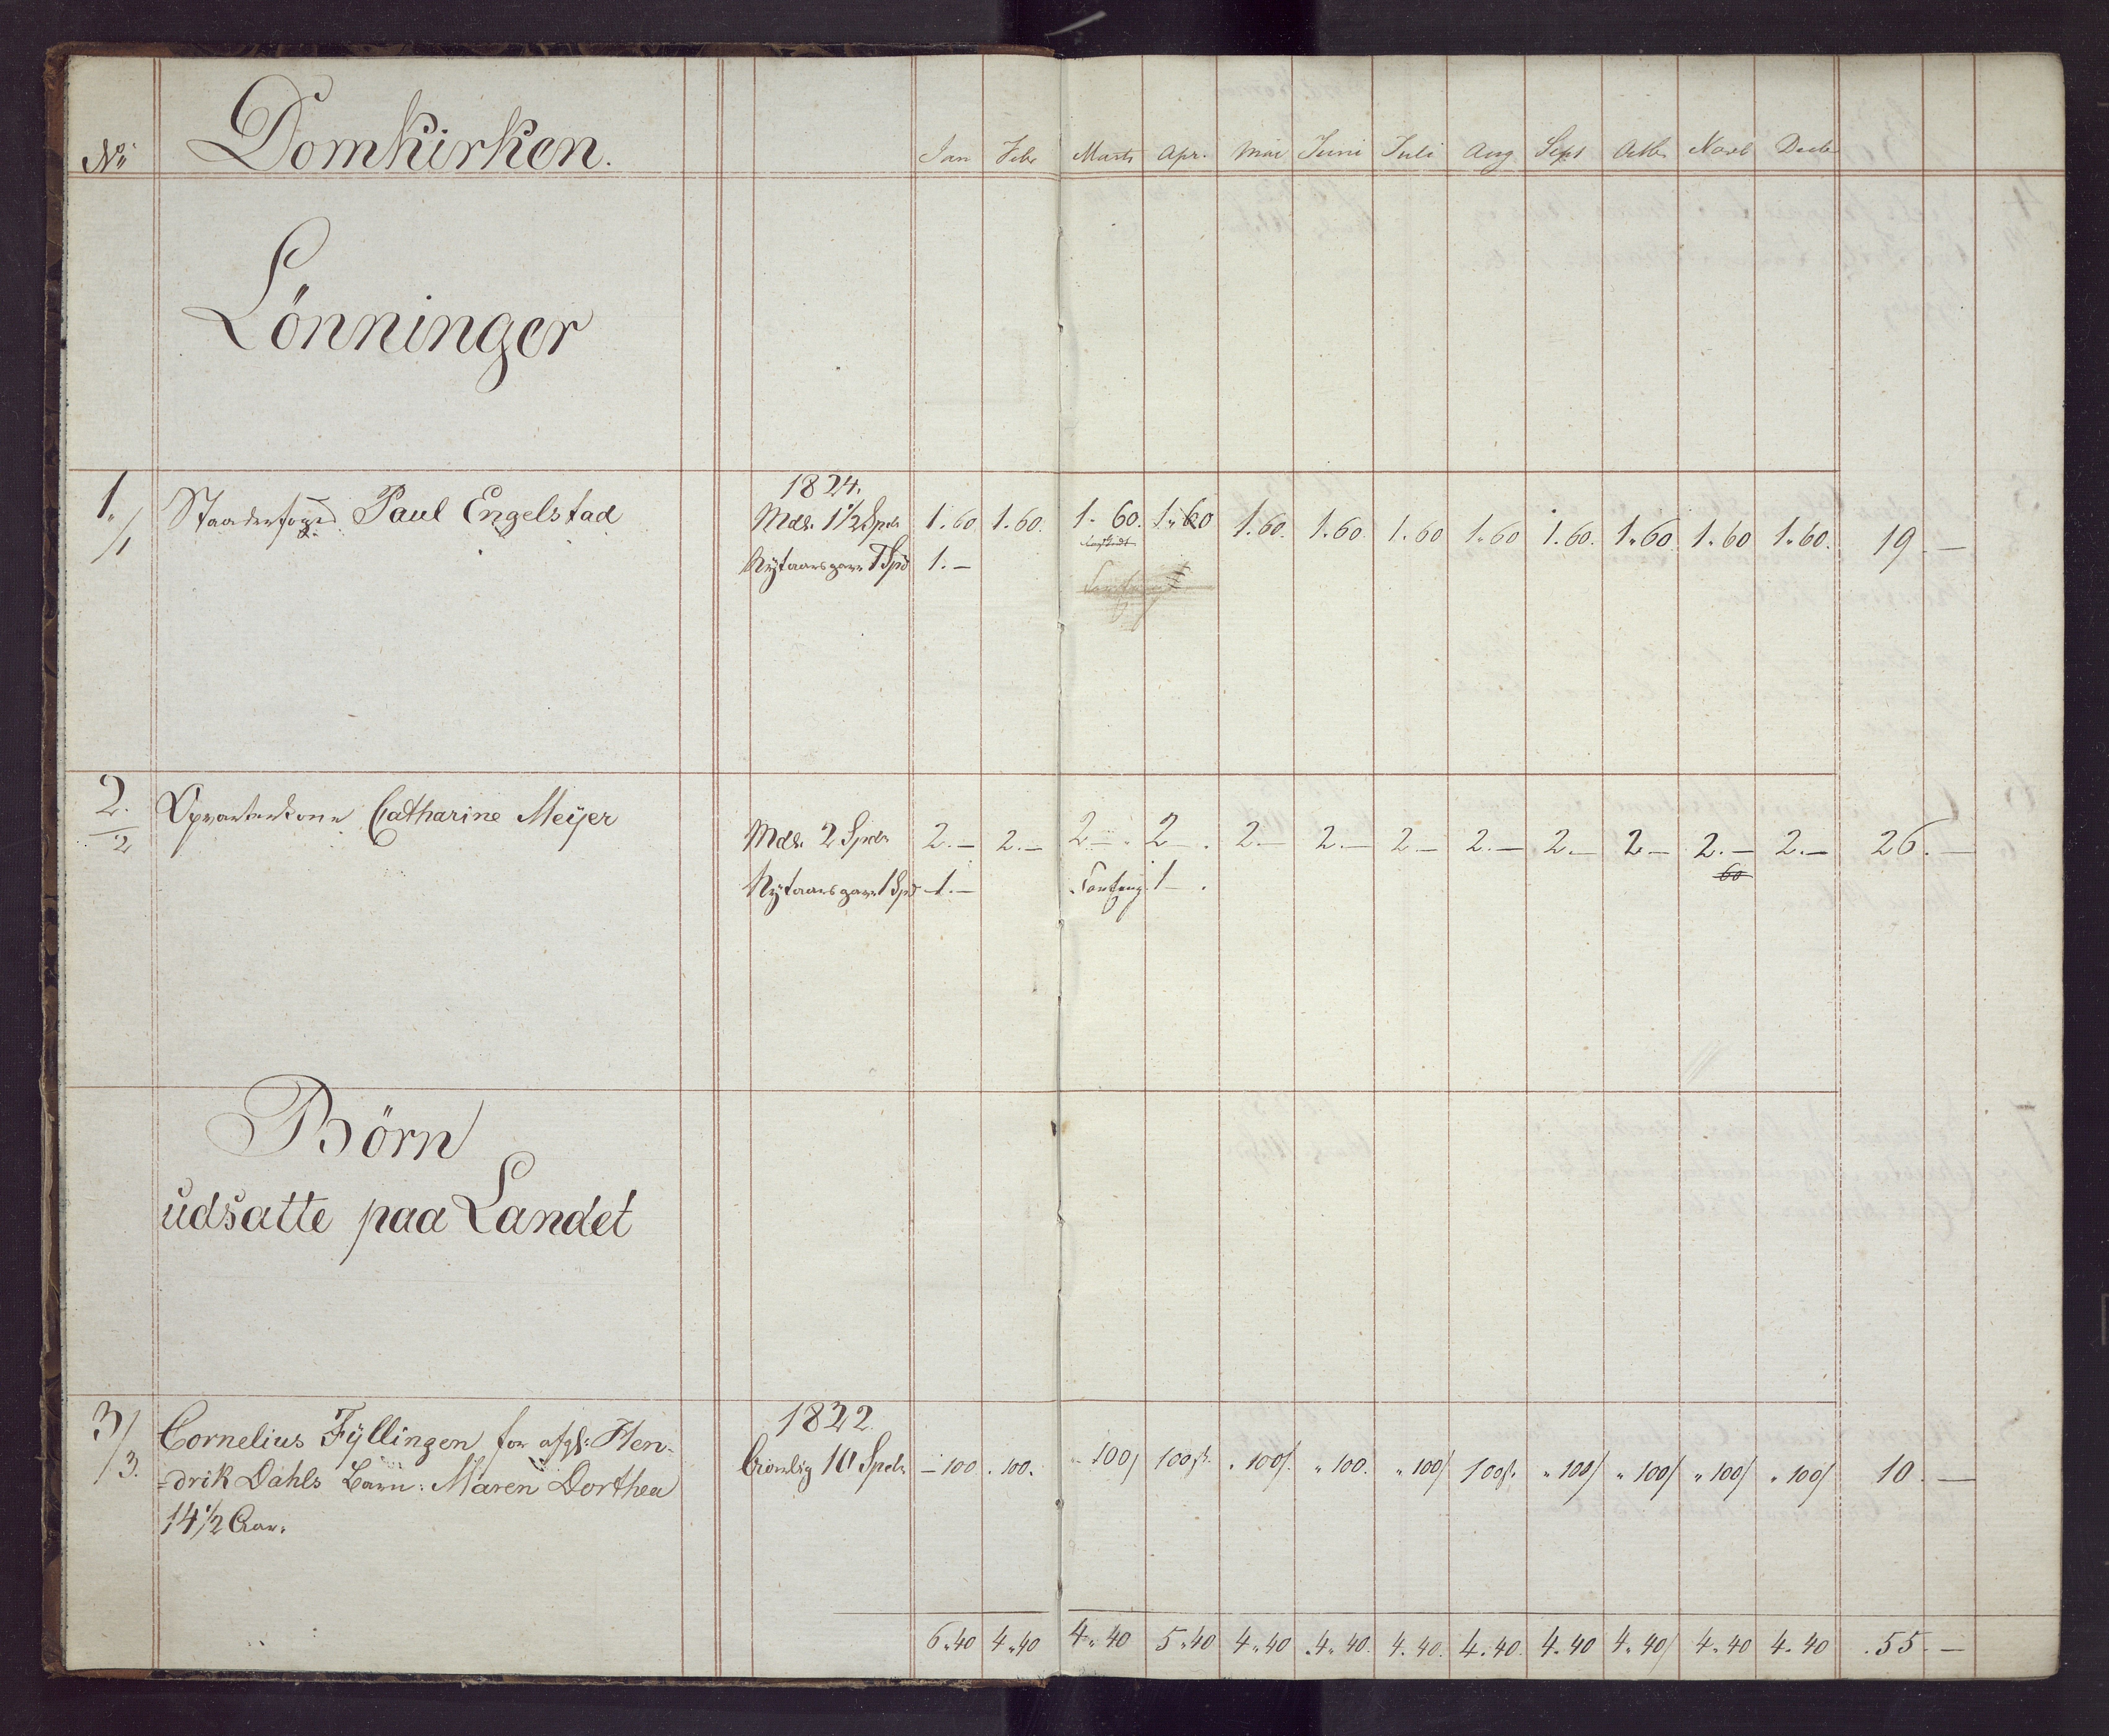 No Domkirken. Jan Febr Marts Apr. Mai Juni Juli Aug Sept Octbr Novb Decbr
Lönninger
1. Staaderfoged Paul Engelstad 1824.
1 Mdl. 1½ Spdr 1.60 1.60. 1-60. 1"60 1.60. 1.60. 1.60 1.60 1.60. 1.60. 1.60 1.60. 19 —
Nÿtaarsgave 1 Spd 1.—
2. Opvarterkone Catharine Meÿer
2 Mdl. 2 Spdr 2.— 2.— 2.— 2—. 2.— 2.— 2.— 2.— 2.— 2.— 2.— 2.— 26.—
60
Nÿtaarsgave 1 Spd 1.— 1—.
Börn
udsatte paa Landet
3/ Cornelius Fÿllingen for afgl: Hen- 1822.
3. =drik Dahls Barn: Maren Dorthea Aarlig 10 Spdr —100 .100. "100/ 100ß. "100/. "100. "100/ 100ß. "100/ "100/ "100/ "100/ 10.—
14½ Aar.
6"40 4"40 4"40 5"40 4"40 .4"40. 4.40. 4.40. 4.40 4"40/ 4.40 4.40 .55.—